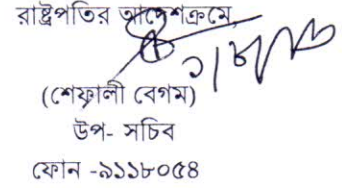 রাষ্ট্রপতির আদেশক্রমে,
(শেফালী বেগম)
উপ- সচিব
ফোন -৯১১৮০৫৪